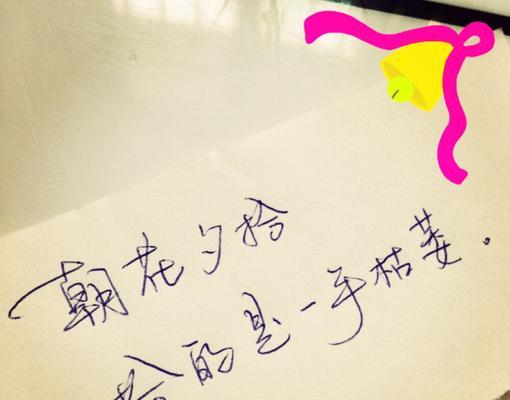 朝花夕拾
拾的是一手枯萎。